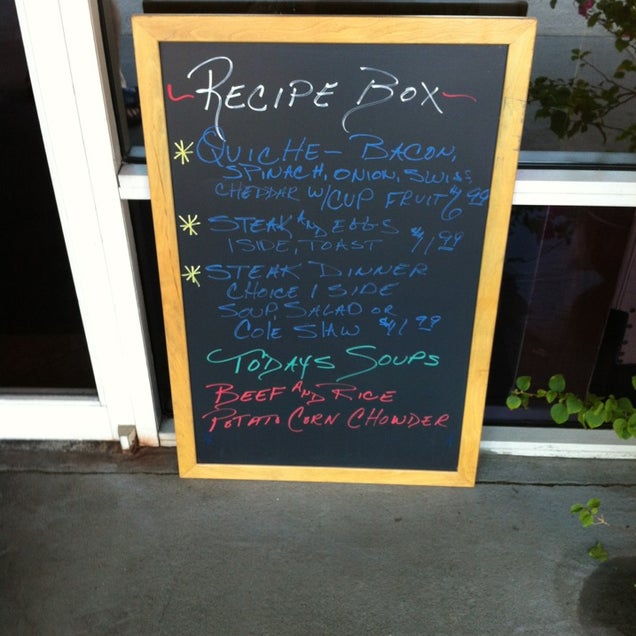 RECIPE BOX
* QUICHE - BACON,
SPINACH, ONION, SWISS
CHEDDAR W/CUP FRUIT $6.99
* STEAK AND EGGS
1 SIDE, TOAST
* STEAK DINNER
CHOICE 1 SIDE
SOUP, SALAD OR
COLE SLAW
TODAYS SOUPS
BEEF AND RICE
POTATO CORN CHOWDER